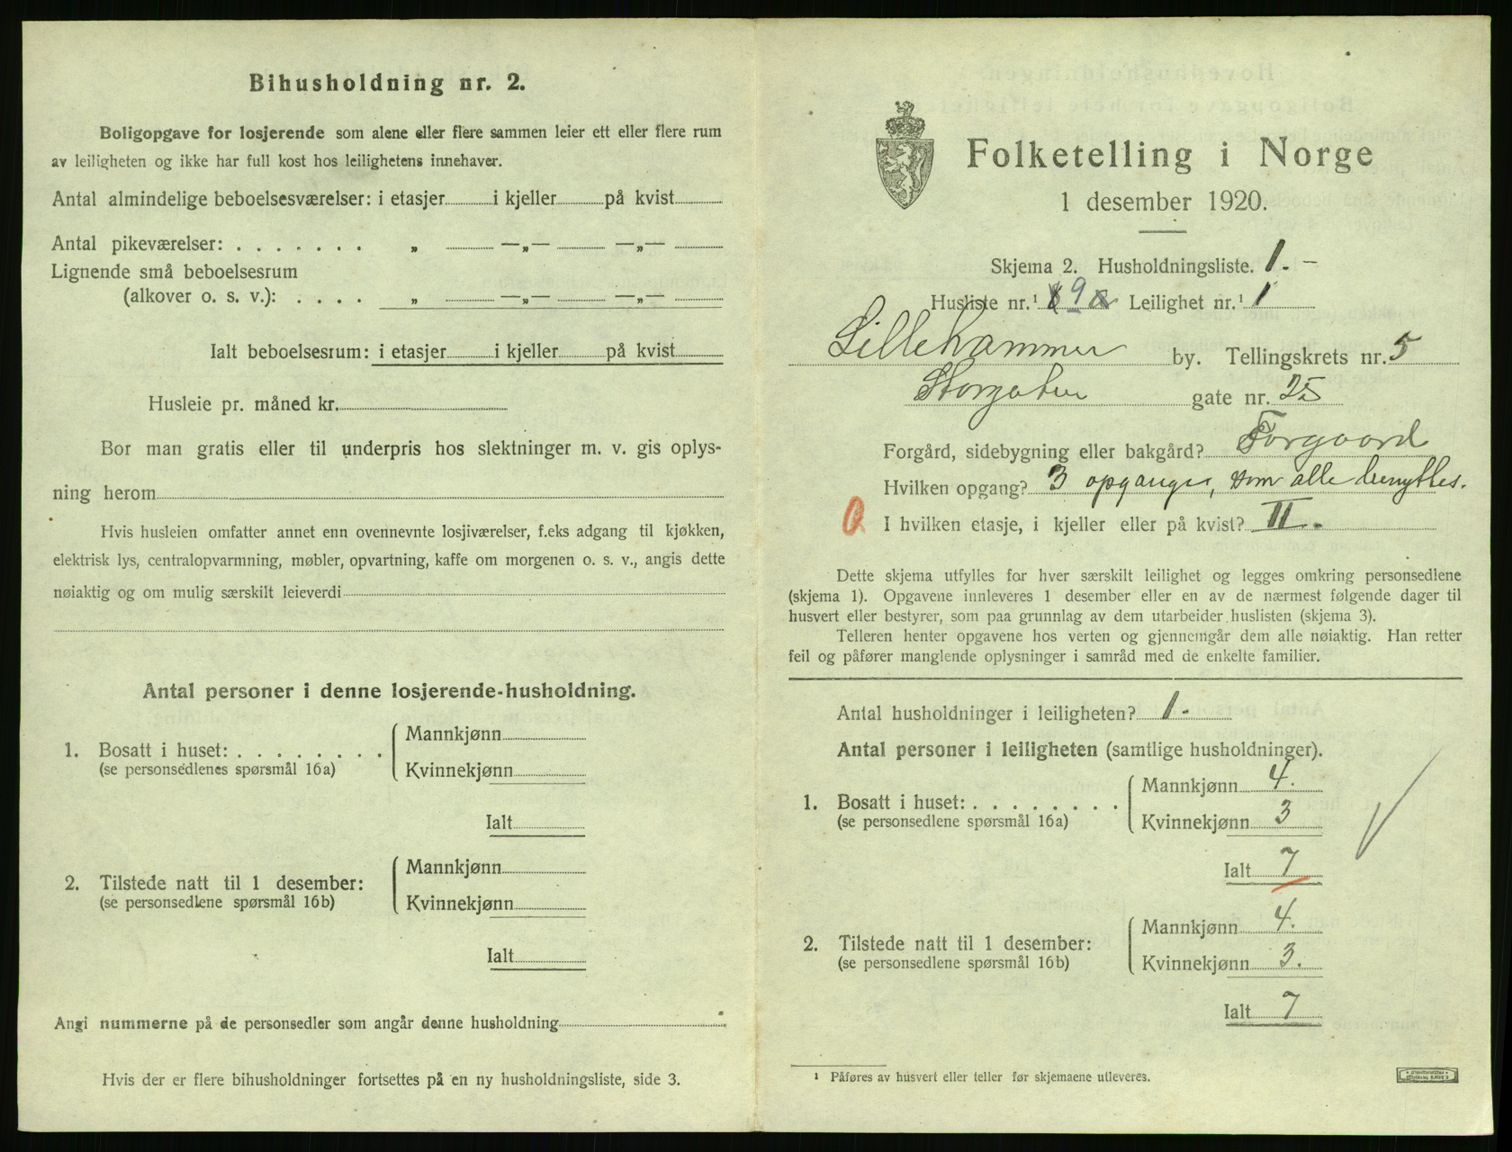 Bihusholdning nr. 2.
Boligopgave for losjerende som alene eller flere sammen leier ett eller flere rum
av leiligheten og ikke har full kost hos leilighetens innehaver.
Antal almindelige beboelsesværelser: i etasjer i kjeller på kvist
Antal pikeværelser: . . . . . . . „ —„— —„—
Lignende små beboelsesrum
(alkover o. s. v.): . . . . „ —„— —„—
Ialt beboelsesrum: i etasjer i kjeller på kvist
Husleie pr. måned kr.
Bor man gratis eller til underpris hos slektninger m. v. gis oplys-
ning herom
Hvis husleien omfatter annet enn ovennevnte losjiværelser, f.eks adgang til kjøkken,
elektrisk lys, centralopvarmning, møbler, opvartning, kaffe om morgenen o. s. v., angis dette
nøiaktig og om mulig særskilt leieverdi
Antal personer i denne losjerende-husholdning.
1. Bosatt i huset: . . . . . . . . Mannkjønn
(se personsedlenes spørsmål 16a) Kvinnekjønn
Ialt
2. Tilstede natt til 1 desember: Mannkjønn
(se personsedlene spørsmål 16b) Kvinnekjønn
Ialt
Angi nummerne på de personsedler som angår denne husholdning
Hvis der er flere bihusholdninger fortsettes på en ny husholdningsliste, side 3.
Folketelling i Norge
1 desember 1920.
Skjema 2. Husholdningsliste. 1. —
Husliste nr.¹ 9 Leilighet nr.¹ 1
Lillehammer by. Tellingskrets nr. 5
Storgaten gate nr. 25
Forgård, sidebygning eller bakgård? Forgaard
Hvilken opgang? 3 opganger, som alle benyttes.
0 I hvilken etasje, i kjeller eller på kvist? II.
Dette skjema utfylles for hver særskilt leilighet og legges omkring personsedlene
(skjema 1). Opgavene innleveres 1 desember eller en av de nærmest følgende dager til
husvert eller bestyrer, som paa grunnlag av dem utarbeider huslisten (skjema 3).
Telleren henter opgavene hos verten og gjennemgår dem alle nøiaktig. Han retter
feil og påfører manglende oplysninger i samråd med de enkelte familier.
Antal husholdninger i leiligheten? 1.
Antal personer i leiligheten (samtlige husholdninger).
1. Bosatt i huset: . . . . . . . . Mannkjønn 4.
(se personsedlene spørsmål 16a) Kvinnekjønn 3
Ialt 7
2. Tilstede natt til 1 desember: Mannkjønn 4.
(se personsedlene spørsmål 16b) Kvinnekjønn 3.
Ialt 7
¹ Påføres av husvert eller teller før skjemaene utleveres.